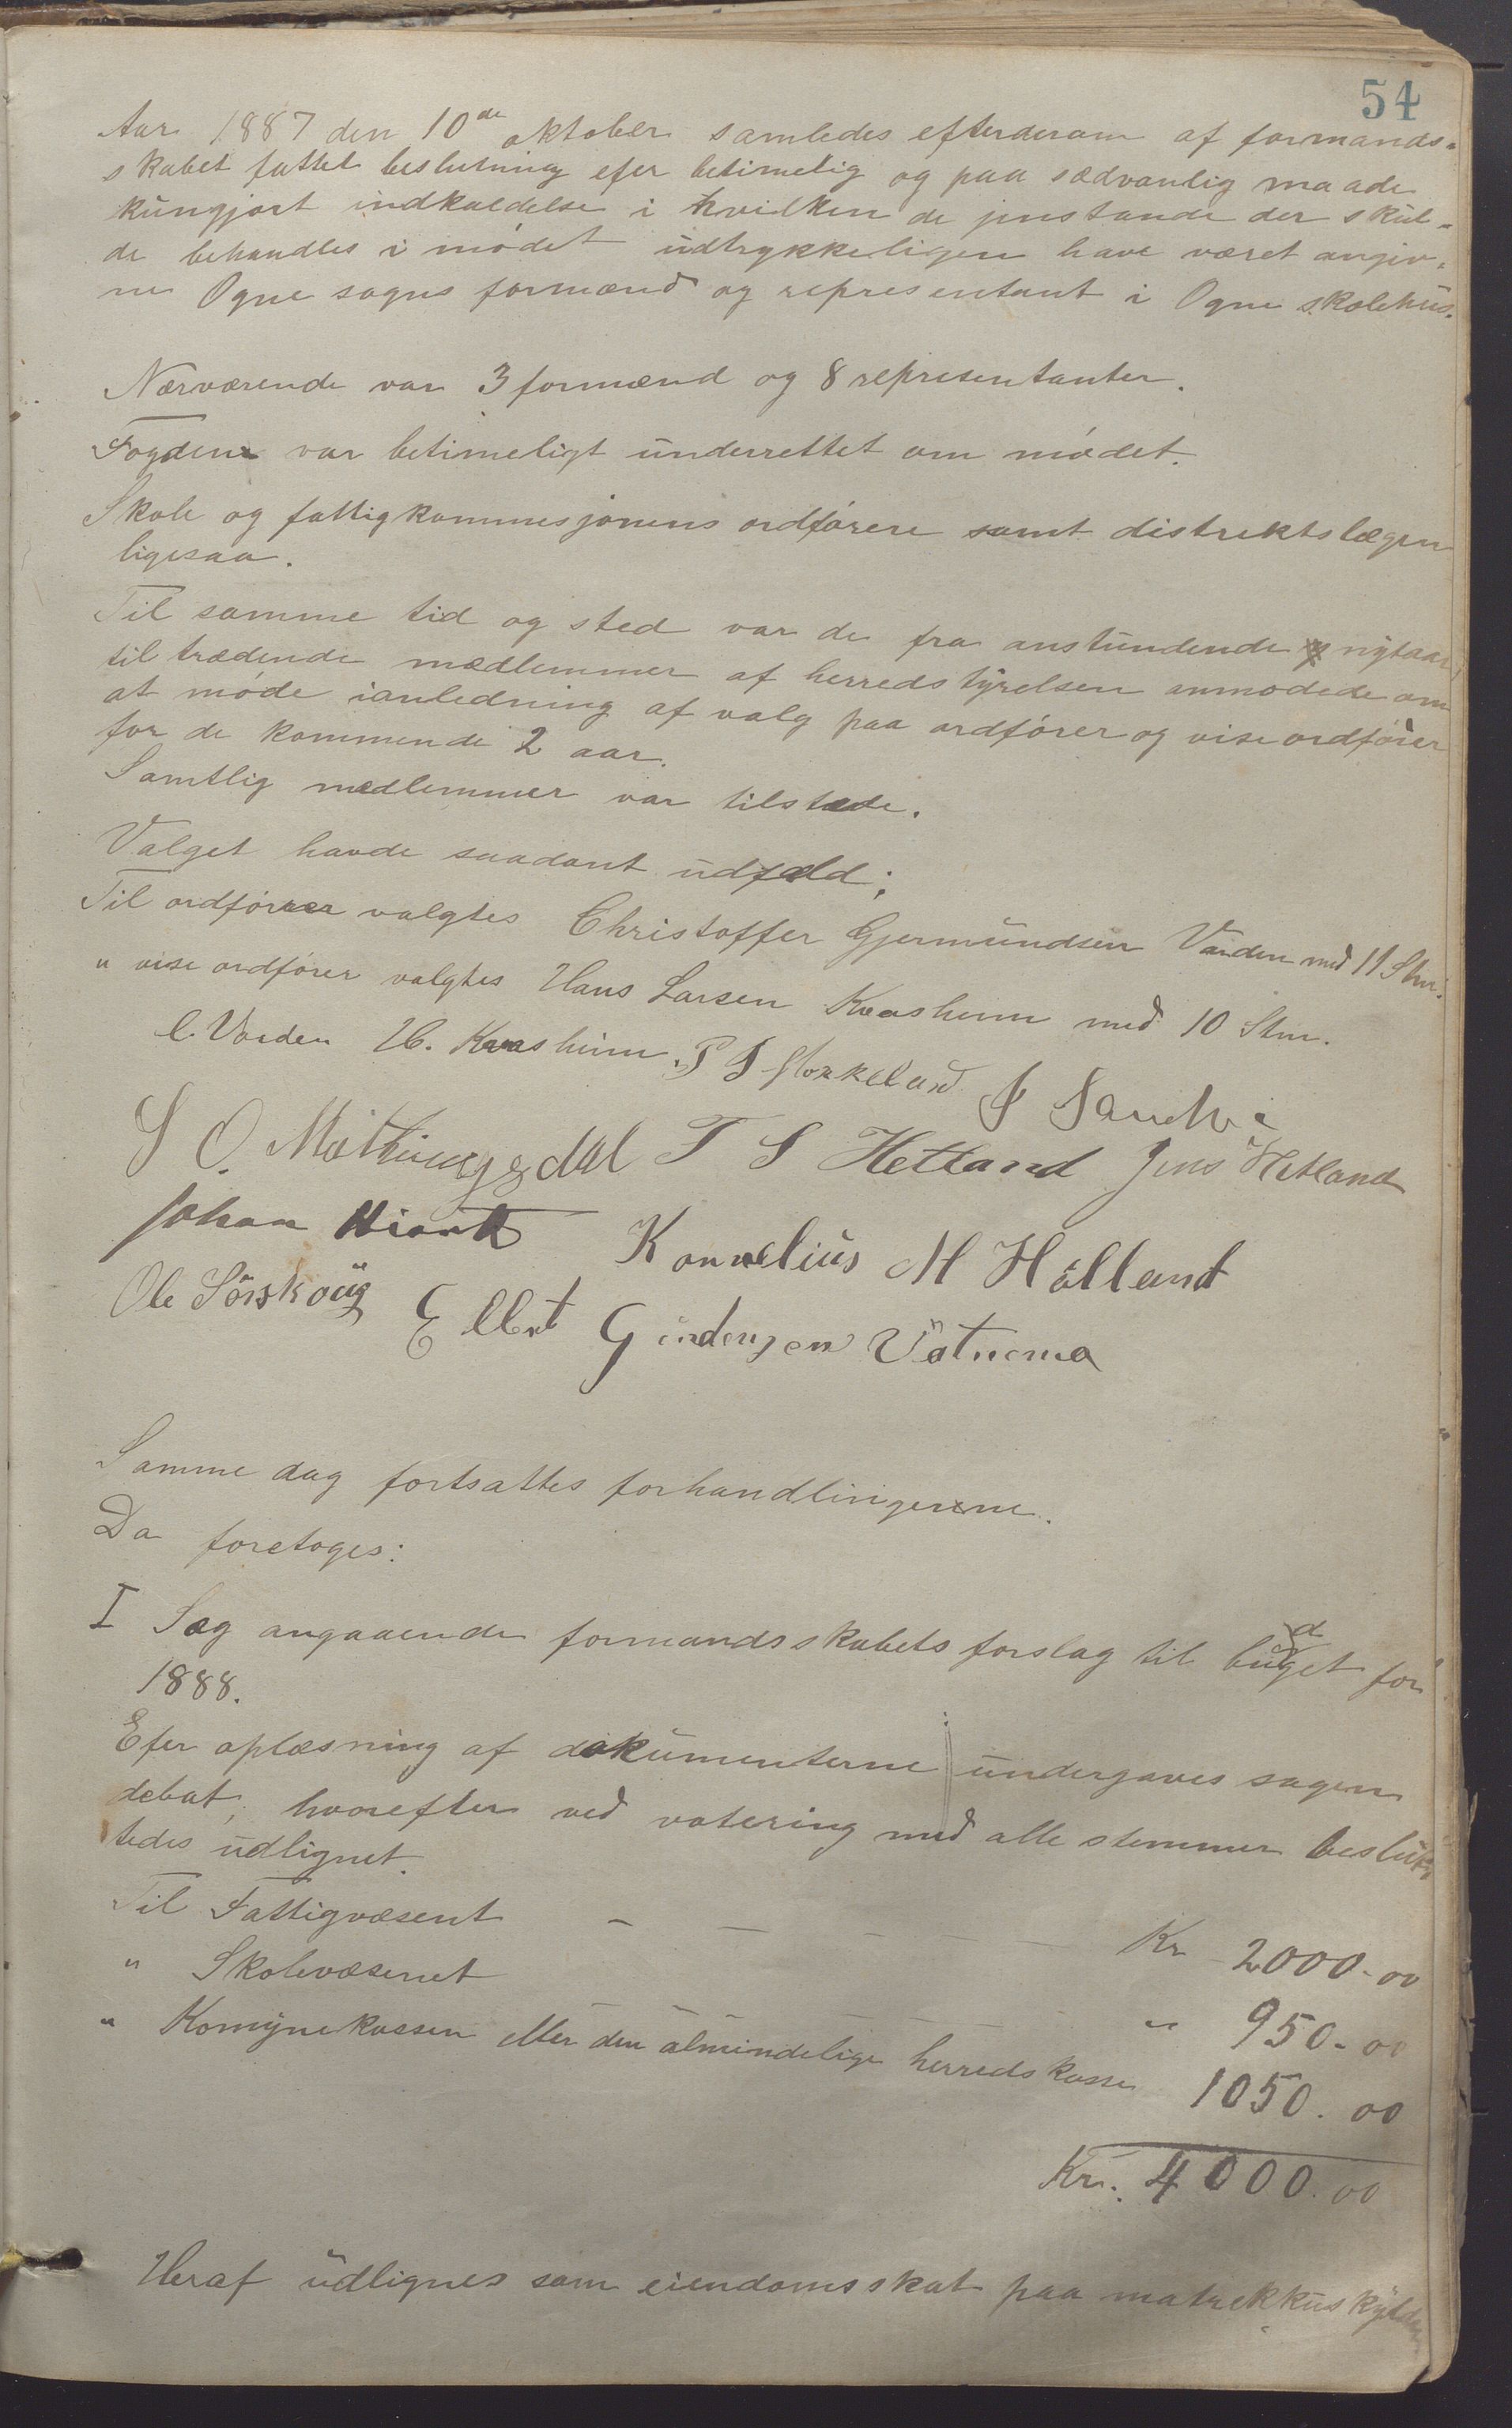 54
Aar 1887 den 10de oktober samledes efterderom af formands-
skabet fattet beslutning efer betimelig og paa sædvanlig maade
kungjort indkaldelse i hvilken de jenstande der skul-
de behandles i mødet udtrykkeligen have været angiv-
ne Ogne sogns formænd og representant i Ogne skolehus.
Nærværende var 3 formænd og 8 representanter.
Fogden var betimeligt underrettet om mødet.
Skole og fattigkommesjonens ordførere samt distriktslægen
ligesaa.
Til samme tid og sted var de fra anstundende nytaar
tiltrædende medlemmer af herredstyrelsen anmodede om
at møde ianledning af valg paa ordfører og viseordfører
for de kommende 2 aar.
Samtlig medlemmer var tilstæde.
Valget havde saadant udfald;
Til ordfører valgtes Christoffer Gjermundsen Varden med 11 Stm.
" vise ordfører valgtes Hans Larsen Kvasheim med 10 Stm.
C. Varden H. Kvasheim. P T Storkeland
S O. Mattingsdal T S Hetland Jens Hetland
Johan Kornelius M Hålland
Ole Sørskoug Ellert
Samme dag fortsattes forhandlingerne.
Da foretoges:
I Sag angaaende formandsskabets forslag til budget for
1888.
Efer oplæsning af dokumenterne undergaves sagen
debat, hvorefter ved votering med alle stemmer beslut-
tedes udlignet.
Til Fattigvæsent - - - - - Kr 2000-00
" Skolevæsenet - - - - - " 950-00
" Komynekassen eller den almindelige herredskasse 1050.00
Kr. 4000.00
Heraf udlignes som eiendomsskat paa matrekkuskylden